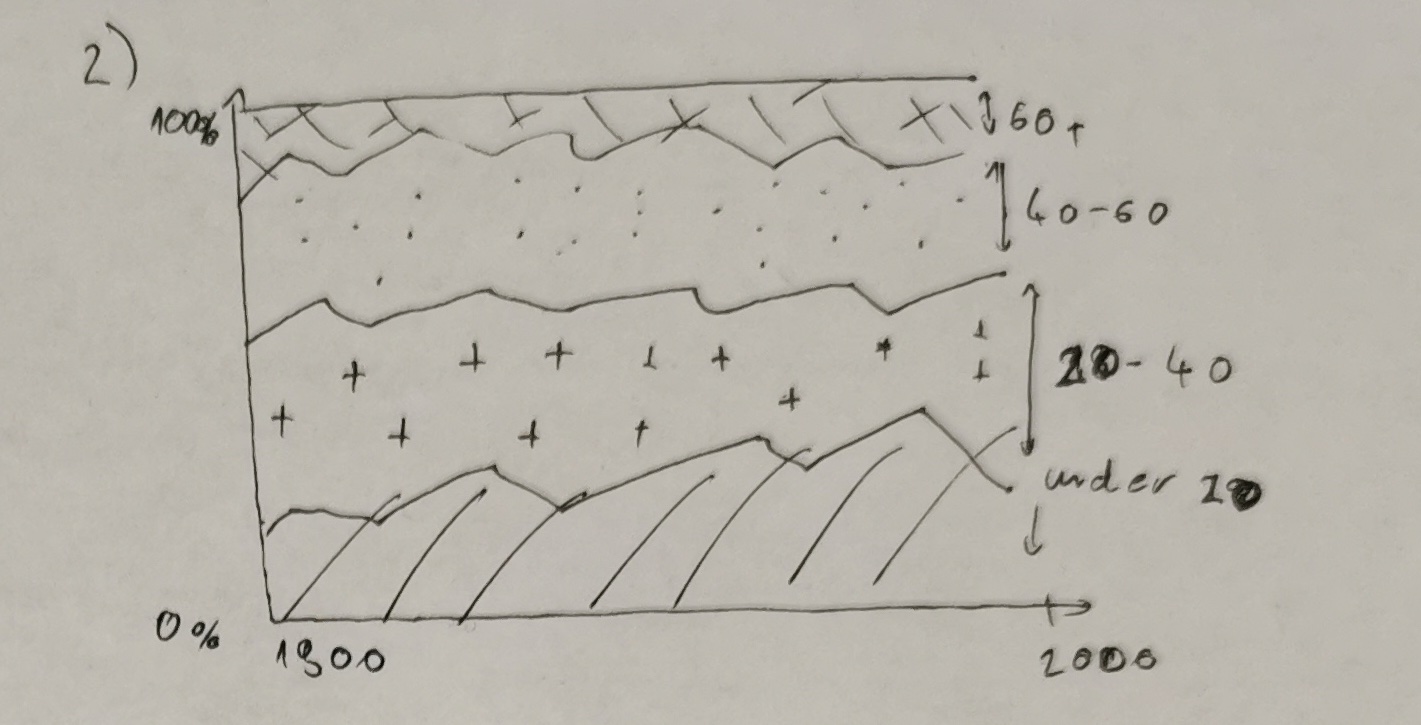 2)
100%
60+
40-60
20-40
under 20
0%
1900
2000